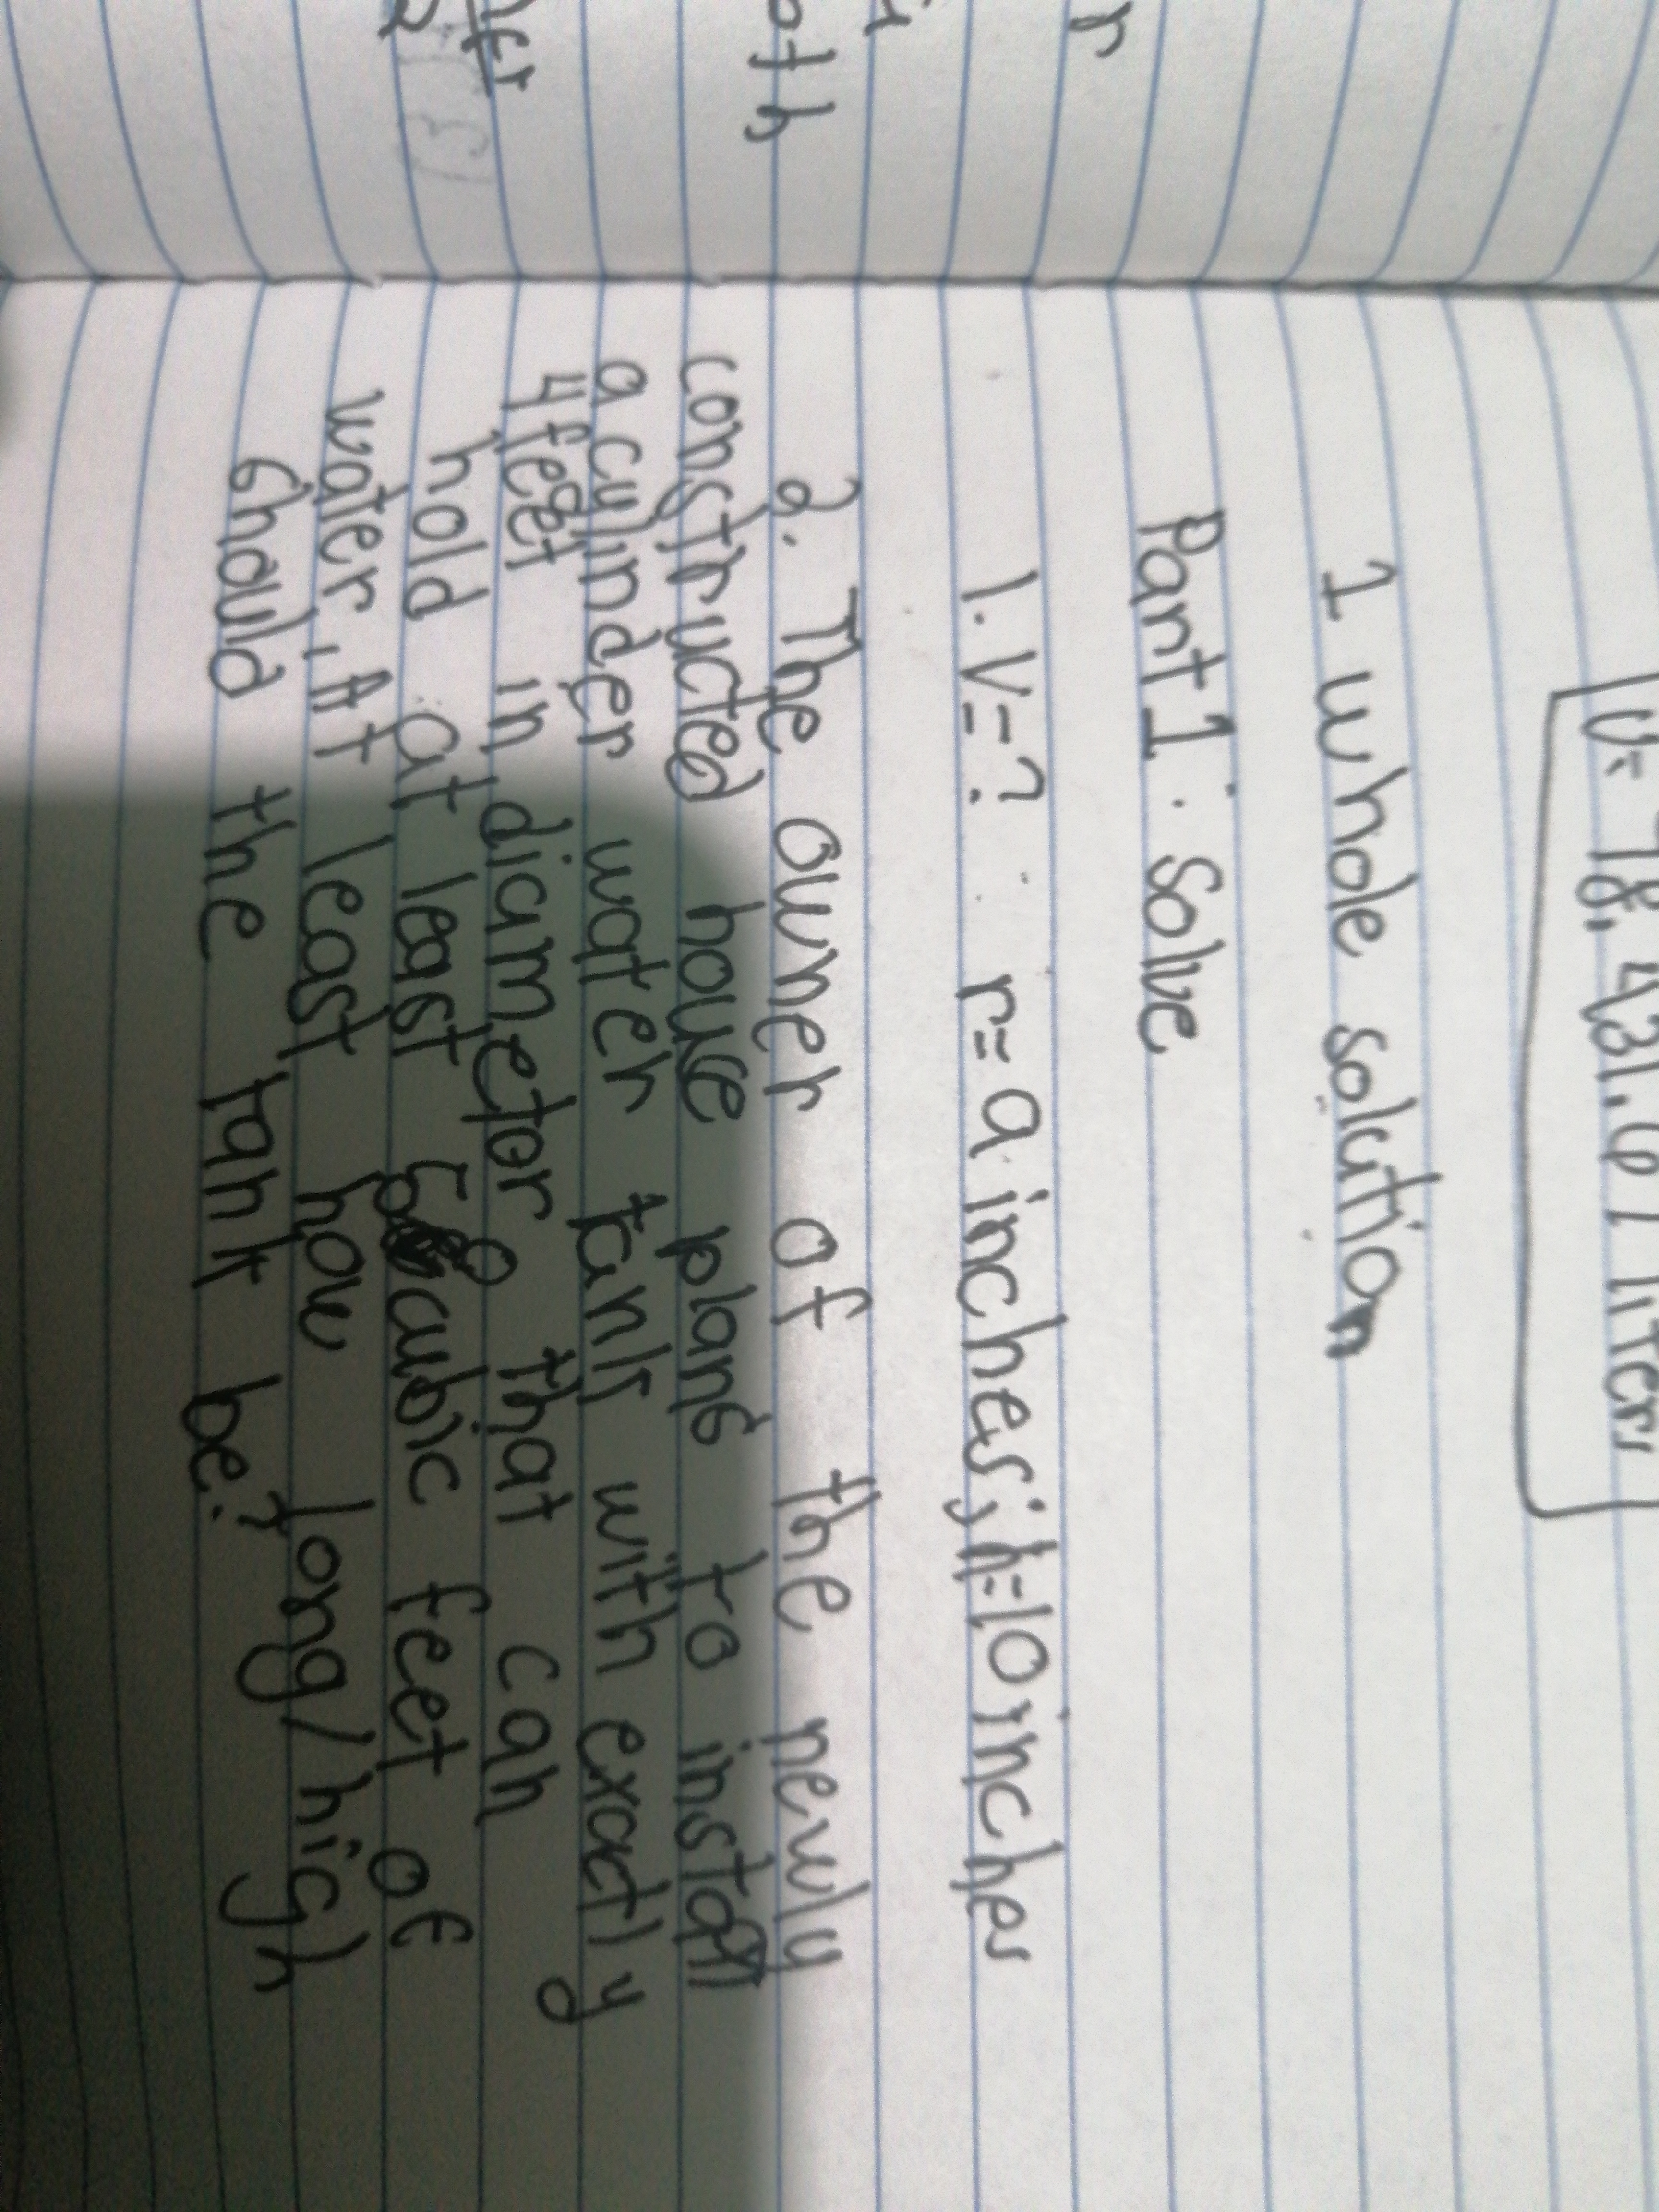 r
oth
V= 78,431.61 liters
1 whole solution
Part 1: Solve
1. V=? r=9 inches; h=10 inches
2. The owner of the newly
constructed house plans to install
a cylinder water tank with exactly
4 feet in diametor so that can
hold at least 50 cubic feet of
water, At least how long/high
should the tank be?